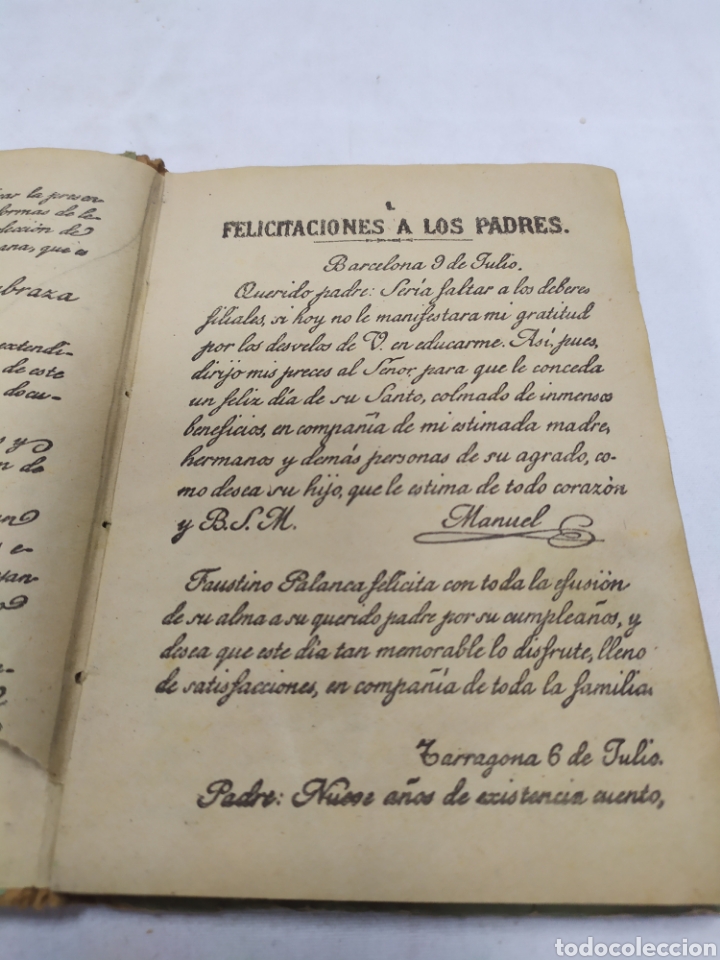 ear la presen-
formas de le-
lección de
ana, que es
abraza
extendi-
de este
docu-
s y
ón de
an
s e-
tan-
o
e-
1.
FELICITACIONES A LOS PADRES.
Barcelona 9 de Julio.
Querido padre: Sería faltar a los deberes
filiales, si hoy no le manifestara mi gratitud
por los desvelos de V. en educarme. Así, pues,
dirijo mis preces al Señor, para que le conceda
un feliz día de su Santo, colmado de inmensos
beneficios, en compañía de mi estimada madre,
hermanos y demás personas de su agrado, co-
mo desea su hijo, que le estima de todo corazòn
y B.S.M. Manuel
Faustino Palanca felicita con toda la efusión
de su alma a su querido padre por su cumpleaños, y
desea que este día tan memorable lo disfrute, lleno
de satisfacciones, en compañía de toda la familia.
Tarragona 6 de Julio.
Padre: Nueve años de existencia cuento,
todocoleccion